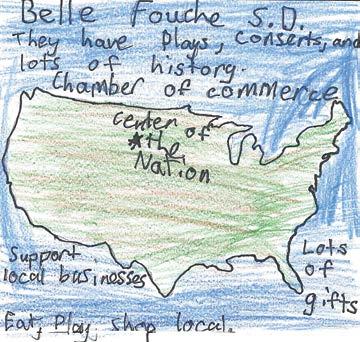 Belle Fouche S.D.
They have Plays, Conserts, and
lots of history.
Chamber of commerce
Center of
*the
Nation
Support
local businesses
Lots
of
gifts
Eat, Play, shop local.